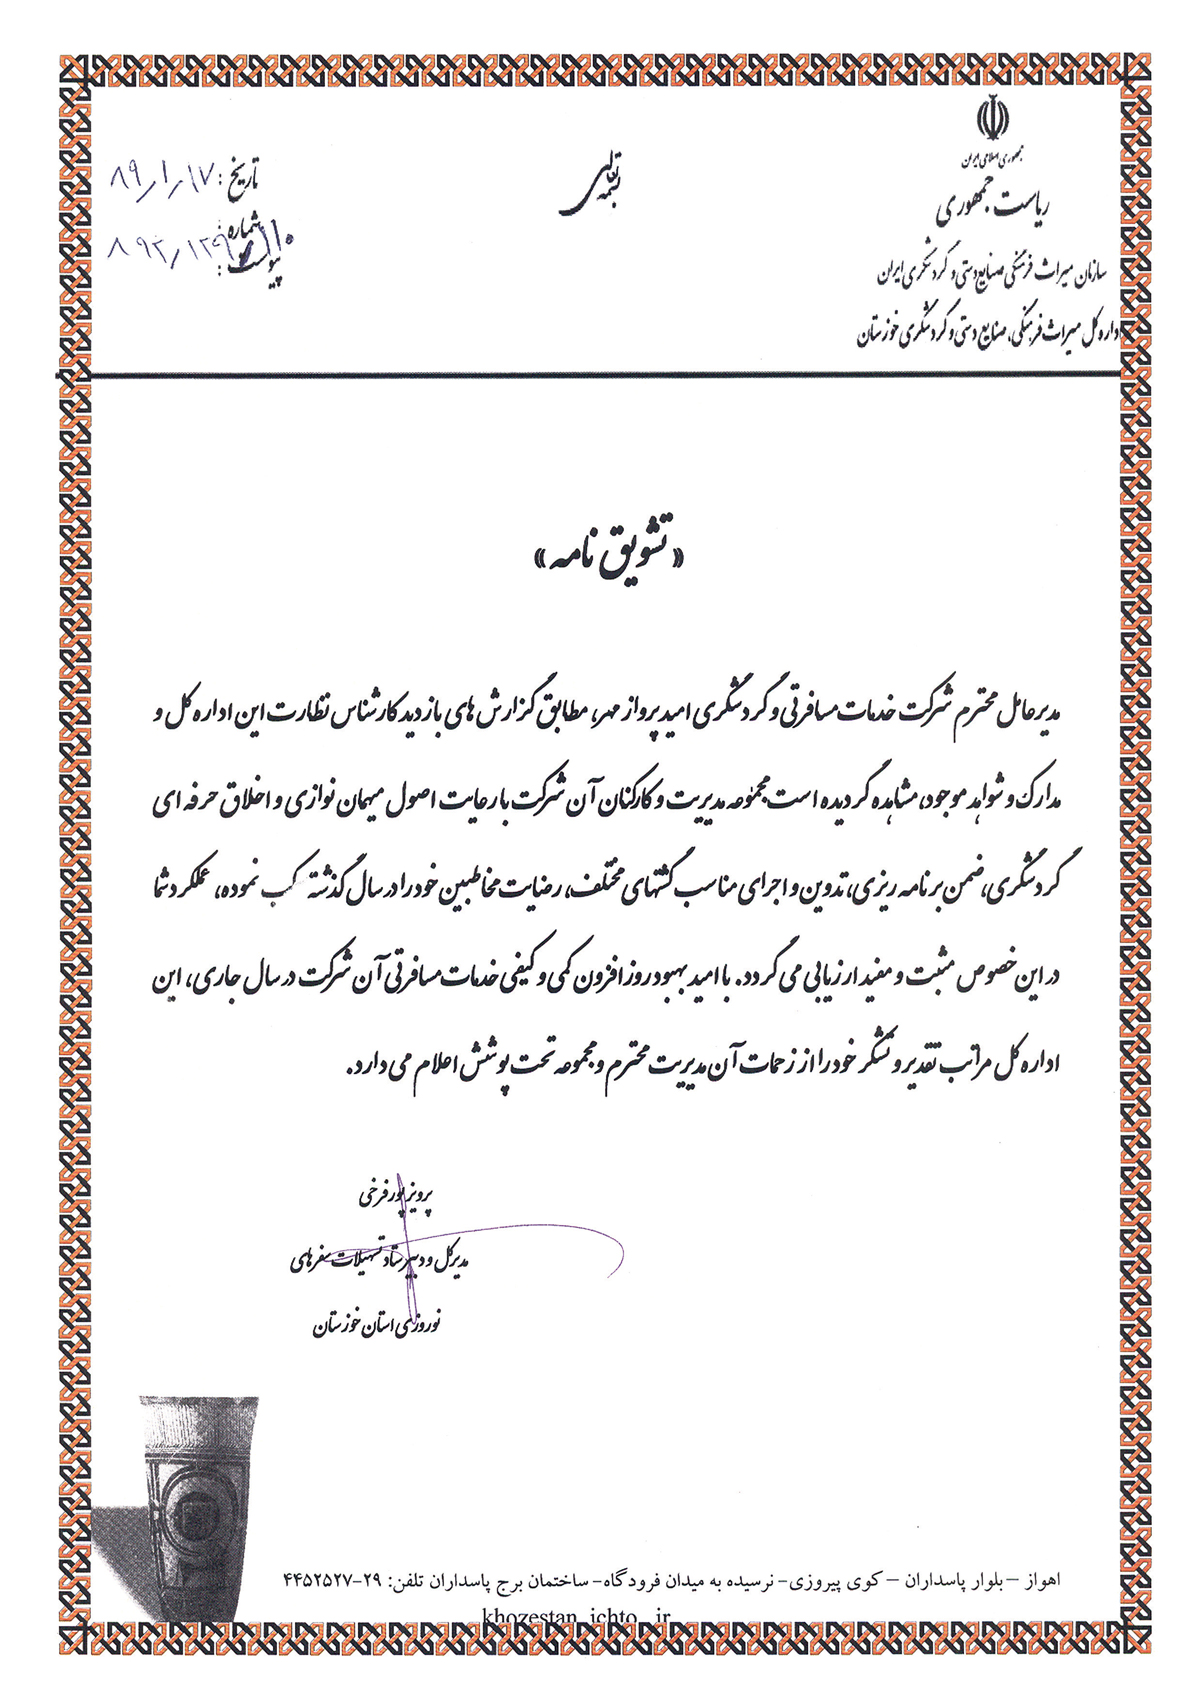 جمهوری اسلامی ایران
ریاست جمهوری
سازمان میراث فرهنگی صنایع دستی و گردشگری ایران
اداره کل میراث فرهنگی، صنایع دستی و گردشگری خوزستان
بسمه تعالی
تاریخ: ۸۹/۱/۱۷
شماره:
پیوست:
«تشویق نامه»
مدیرعامل محترم شرکت خدمات مسافرتی و گردشگری امید پرواز مهر، مطابق گزارش های بازدید کارشناس نظارت این اداره کل و
مدارک و شواهد موجود، مشاهده گردیده است مجموعه مدیریت و کارکنان آن شرکت با رعایت اصول میهمان نوازی و اخلاق حرفه ای
گردشگری، ضمن برنامه ریزی، تدوین و اجرای مناسب گشتهای مختلف، رضایت مخاطبین خود را در سال گذشته کسب نموده، عملکرد شما
در این خصوص مثبت و مفید ارزیابی می گردد. با امید بهبود روزافزون کمی و کیفی خدمات مسافرتی آن شرکت در سال جاری، این
اداره کل مراتب تقدیر و تشکر خود را از زحمات آن مدیریت محترم و مجموعه تحت پوشش اعلام می دارد.
پرویز پورفرخی
مدیرکل و دبیر ستاد تسهیلات سفرهای
نوروزی استان خوزستان
اهواز – بلوار پاسداران – کوی پیروزی- نرسیده به میدان فرودگاه- ساختمان برج پاسداران تلفن: ۲۹-۴۴۵۲۵۲۷
khozestan ichto . ir